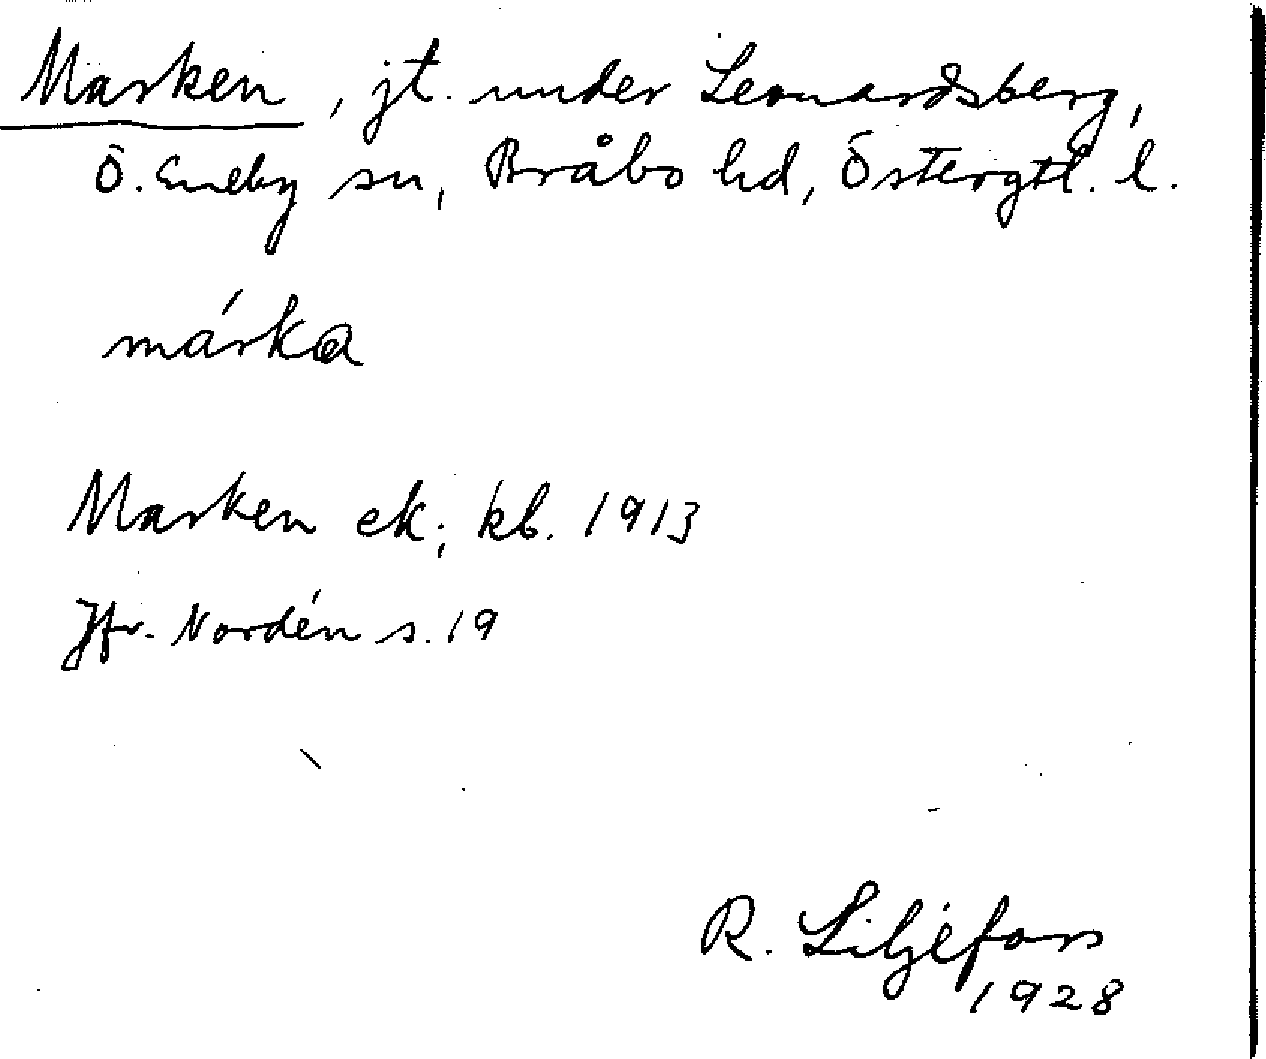 Marken, jt. under Leonardsberg,
Ö. Eneby sn, Bråbo hd, Östergtl. l.
márka
Marken ek; kb. 1913
Jfr. Nordén s. 19
R. Liljefors
1928